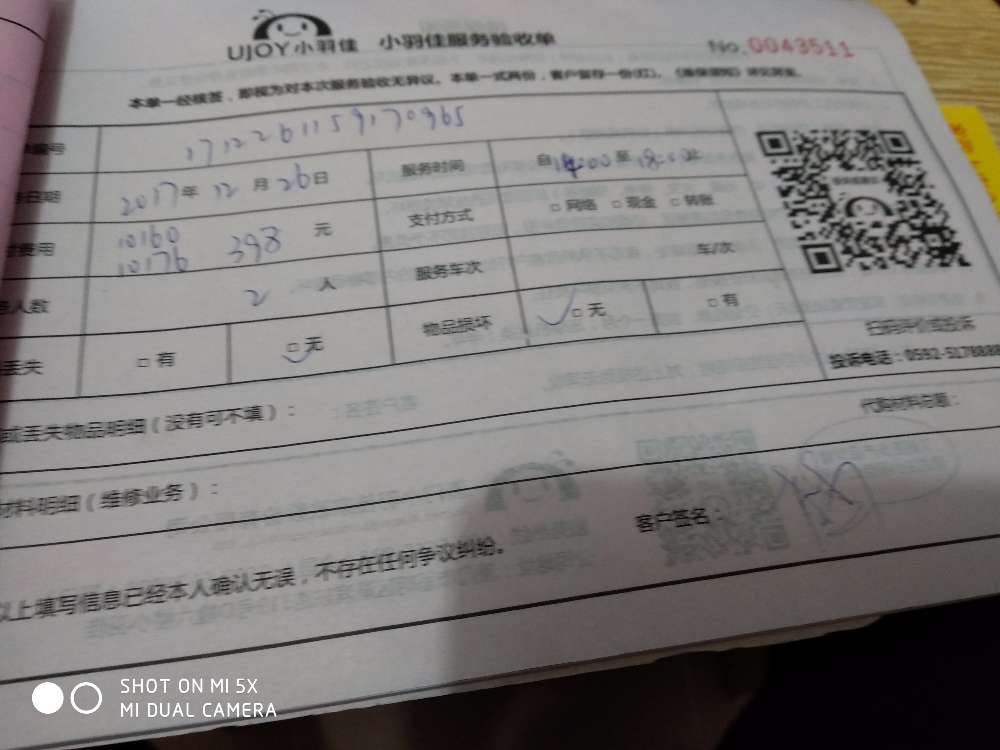 UJOY小羽佳 小羽佳服务验收单
No.0043511
本单一经核签，即视为对本次服务验收无异议。本单一式两份，客户留存一份(红)。
编号 1712261159170965
日期 2017年12月26日 服务时间 自14:00至18:00止
费用 10160 10176 398 元 支付方式 □网络 □现金 □转账
人数 2 人 服务车次 车/次
丢失 □有 □无 物品损坏 □无 □有
扫码评价或投诉
投诉电话：0592-5178888
或丢失物品明细（没有可不填）：
代购材料总额：
材料明细（维修业务）：
客户签名：
以上填写信息已经本人确认无误，不存在任何争议纠纷。
SHOT ON MI 5X
MI DUAL CAMERA